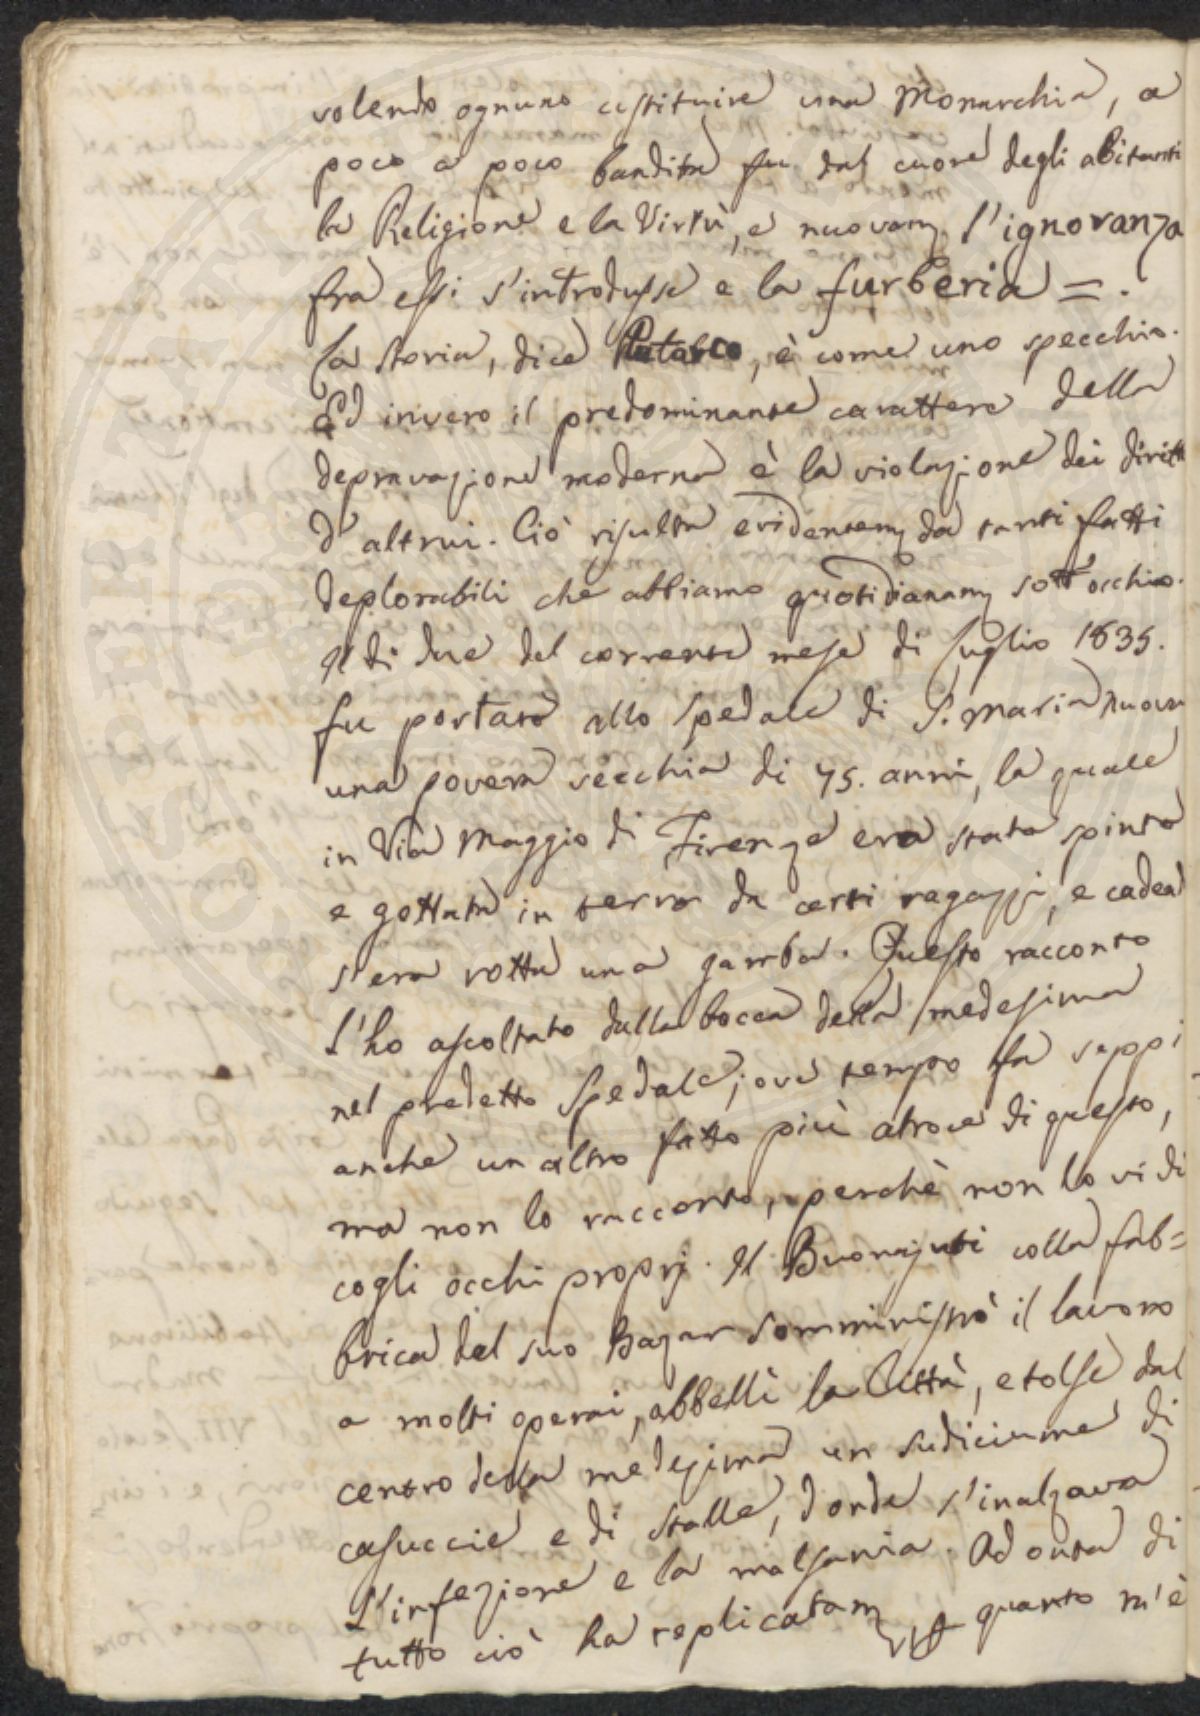 volendo ognuno costituire una Monarchia, a
poco a poco bandita fu dal cuore degli abitanti
la Religione e la Virtù, e nuovam. l'ignoranza
fra essi s'introdusse e la furberia =.
La Storia, dice Plutarco, è come uno specchio.
Ed invero il predominante carattere della
depravazione moderna è la violazione dei diritti
d'altrui. Ciò risulta evidentem. da tanti fatti
deplorabili che abbiamo quotidianam. sott'occhio.
Il dì due del corrente mese di Luglio 1835.
fu portata allo Spedale di S. Maria Nuova
una povera vecchia di 75. anni, la quale
in Via Maggio di Firenze era stata spinta
e gettata in terra da certi ragazzi, e cadea
s'era rotta una gamba. Questo racconto
l'ho ascoltato dalla bocca della medesima
nel predetto Spedale; ove tempo fa seppi
anche un altro fatto più atroce di questo,
ma non lo racconto, perchè non lo vidi
cogli occhi proprj. Il Buonajuti colla fab=
brica del suo Bazar somministrò il lavoro
a molti operai, abbellì la Città, e tolse dal
centro della medesima un sudiciume di
casuccie e di stalle, donde s'inalzava
l'infezione e la malsania. Ad onta di
tutto ciò ha replicatam. quanto m'è